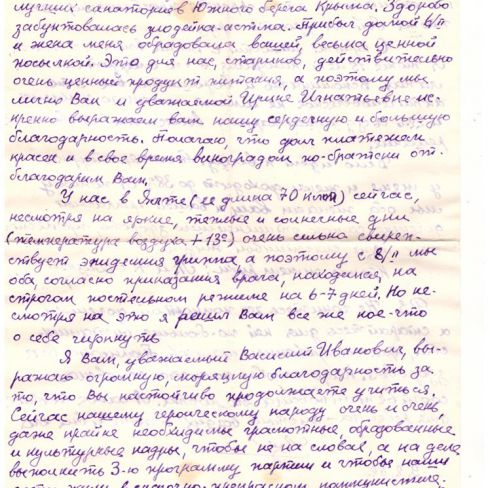 лучших санаториев Южного берега Крыма. Здорово
забунтовалась злодейка-астма. Прибыл домой 6/II
и жена меня обрадовала вашей, весьма ценной
посылкой. Это для нас, стариков, действительно
очень ценный продукт питания, а поэтому мы
лично Вам и уважаемой Ирине Игнатьевне ис-
кренно выражаем вам нашу сердечную и большую
благодарность. Полагаю, что долг платежом
красен и в свое время виноградом по-братски от-
благодарим Вам.
У нас в Ялте (ее длина 70 клм) сейчас,
несмотря на яркие, теплые и солнечные дни
(температура воздуха +13°) очень сильно свиреп-
ствует эпидемия гриппа а поэтому с 8/II мы
оба, согласно приказания врача, находимся на
строгом постельном режиме на 6-7 дней. Но не-
смотря на это я решил Вам все же кое-что
о себе чиркнуть
Я Вам, уважаемый Василий Иванович, вы-
ражаю огромную, моряцкую благодарность за
то, что Вы настойчиво продолжаете учиться.
Сейчас нашему героическому народу очень и очень,
даже крайне необходимы грамотные, образованные
и культурные кадры, чтобы не на словах, а на деле
выполнить 3-ю программу партии и чтобы наши